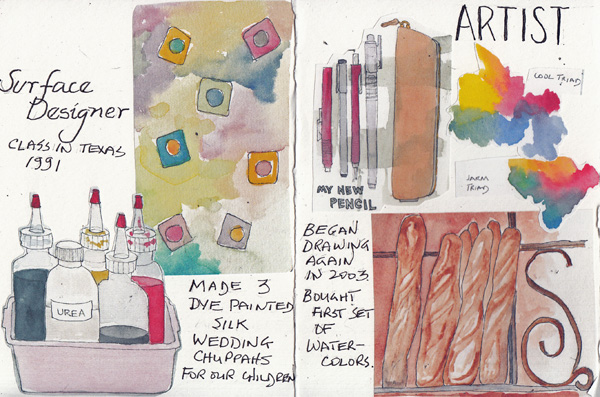 Surface
Designer
CLASS IN TEXAS
1991
UREA
MADE 3
DYE PAINTED
SILK
WEDDING
CHUPPAHS
FOR OUR CHILDREN
ARTIST
COOL TRIAD
WARM
TRIAD
MY NEW
PENCIL
BEGAN
DRAWING
AGAIN
IN 2003.
BOUGHT
FIRST SET
OF
WATER-
COLORS.